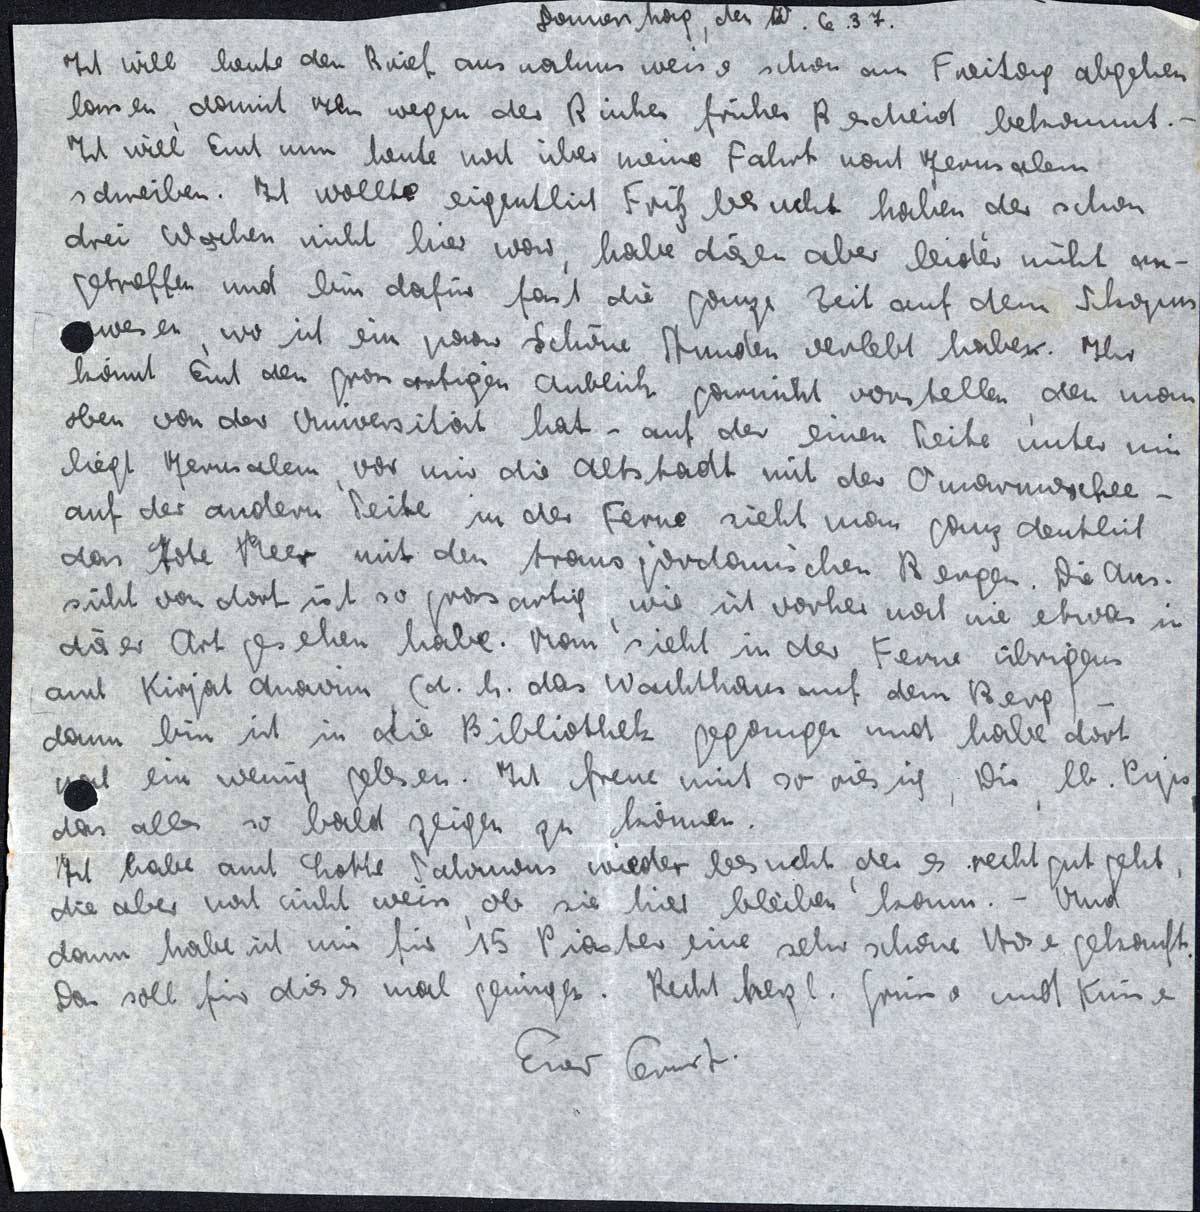 Donnerstag, den 10. 6. 37.
Ich will heute den Brief ausnahmsweise schon am Freitag abgehen
lassen, damit wegen der Bücher früher Bescheid bekommt. -
Ich will Euch nun heute noch über meine Fahrt nach Jerusalem
schreiben. Ich wollte eigentlich Fritz besucht haben der schon
drei Wochen nicht hier war, habe diesen aber leider nicht an-
getroffen und bin dafür fast die ganze Zeit auf dem Skopus
wesen, wo ich ein paar schöne Stunden verlebt habe. Ihr
könnt Euch den grossartigen Anblick garnicht vorstellen, den man
oben von der Universität hat - auf der einen Seite unter mir
liegt Jerusalem, vor mir die Altstadt mit der Omarmoschee -
auf der andern Seite in der Ferne sieht man ganz deutlich
das Tote Meer mit den transjordanischen Bergen. Die Aus-
sicht von dort ist so grossartig, wie ich vorher noch nie etwas in
dieser Art gesehen habe. Man sieht in der Ferne übrigens
auch Kirjat Anavim (d. h. das Wachthaus auf dem Berg) -
dann bin ich in die Bibliothek gegangen und habe dort
noch ein wenig gelesen. Ich freue mich so riesig, Dir, lb.
das alles so bald zeigen zu können.
Ich habe auch Lotte Salomons wieder besucht, der es recht gut geht,
die aber noch nicht weiss, ob sie hier bleiben kann. - Und
dann habe ich mir für 15 Piaster eine sehr schöne Hose gekauft.
Das soll für dieses mal genügen. Recht herzl. Grüsse und Küsse
Euer Ernst.